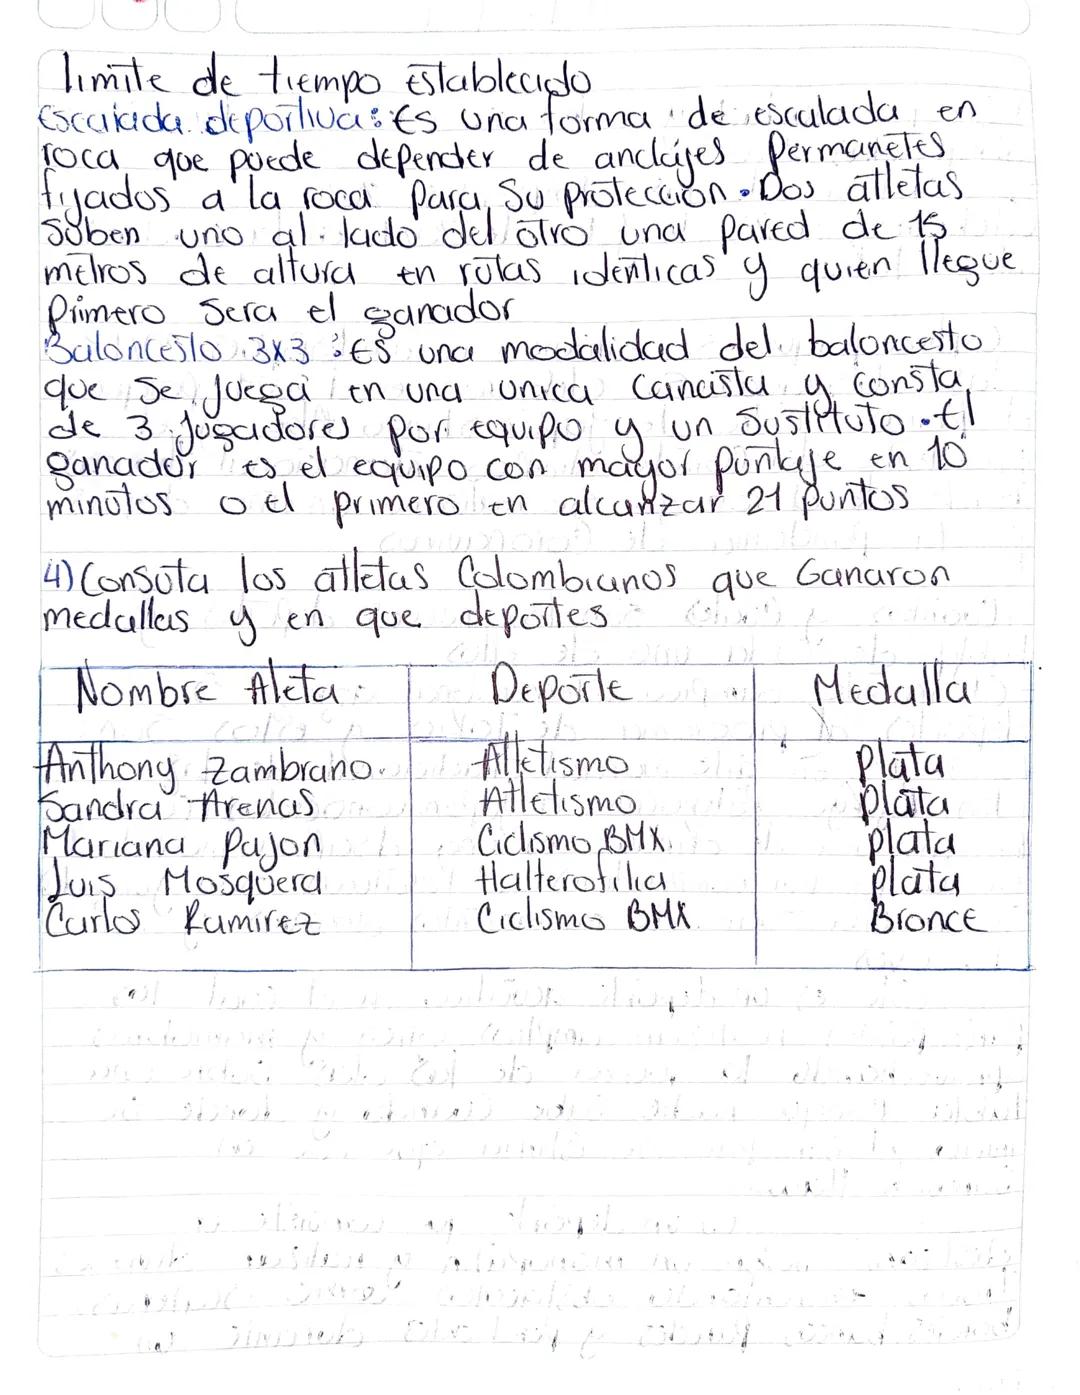 limite de tiempo establecido
Escalada deportiva: Es una forma de escalada en
roca que puede depender de anclajes Permanetes
fijados a la roca Para Su protección. Dos atletas
Suben uno al lado del otro una pared de 15
metros de altura en rutas identicas y quien llegue
Primero Sera el ganador
Baloncesto 3x3: Es una modalidad del baloncesto
que Se juega en una unica Cancista y Consta
de 3 Jugadores por equipo y un Sustituto. El
ganador es el equipo con mayor puntaje en 10
minutos o el primero en alcanzar 21 puntos
4) Consuta los atletas Colombianos que Ganaron
medallas y en que deportes
Nombre Aleta Deporte Medalla
Anthony Zambrano Atletismo Plata
Sandra Arenas Atletismo plata
Mariana Pajon Ciclismo BMX plata
Luis Mosquera Halterofilia plata
Carlos Ramirez Ciclismo BMX Bronce